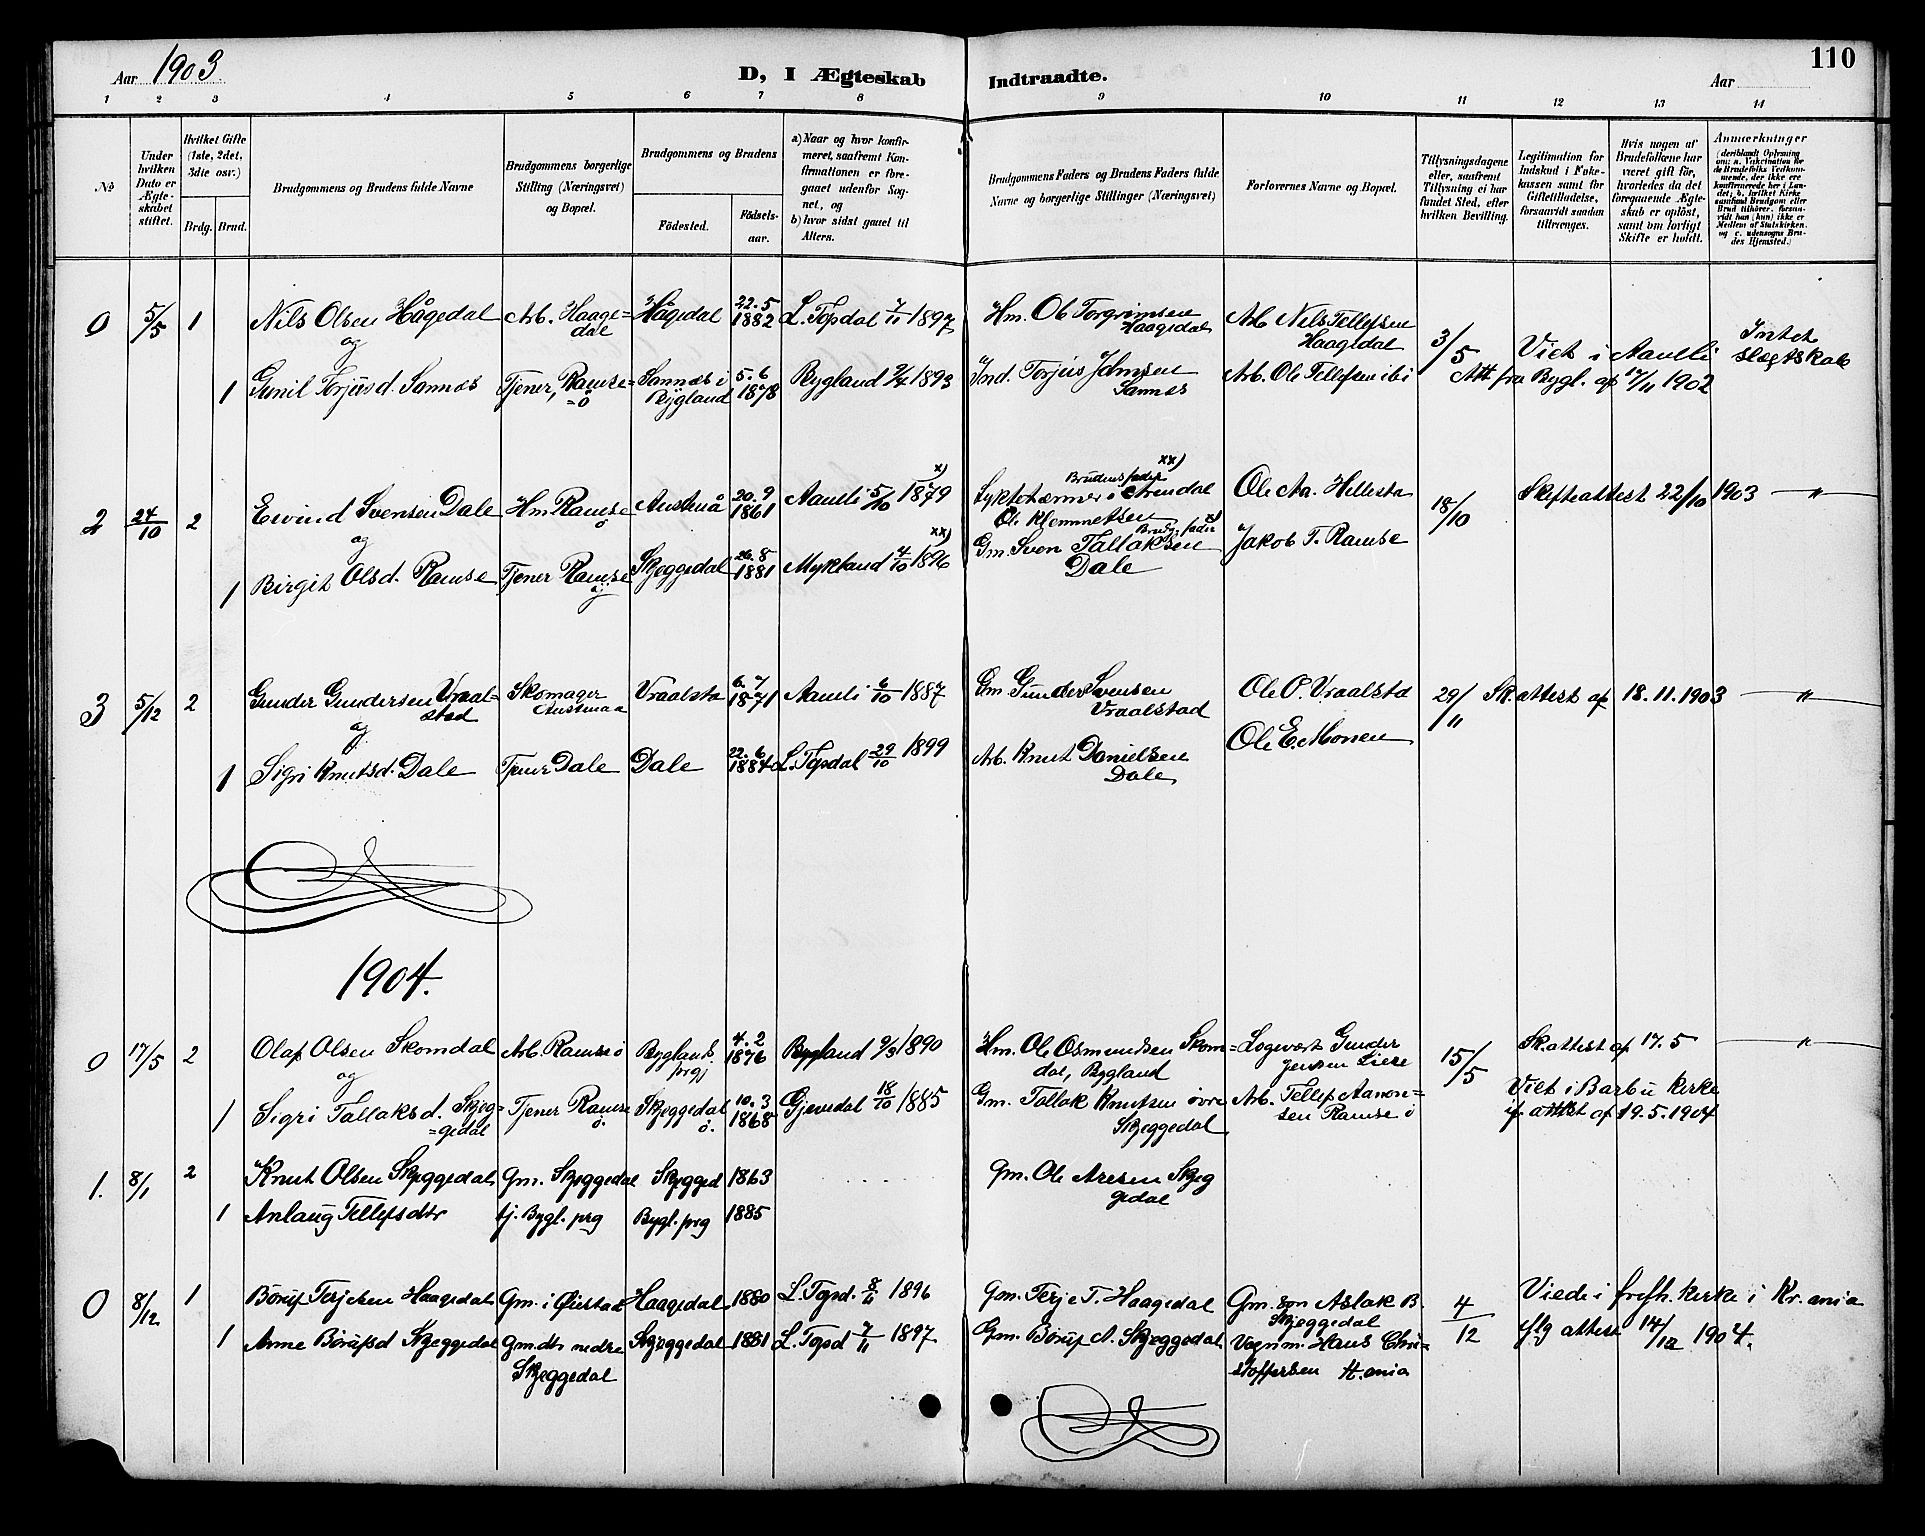 Aar 1903.
D, I Ægteskab Indtraadte.
Aar
110
1 2 3 4 5 6 7 8 9 10 11 12 13 14
No
Under hvilken Dato er Ægteskabet stiftet.
Hvilket Gifte (1ste, 2det, 3die osv.)
Brdg. Brud.
Brudgommens og Brudens fulde Navne
Brudgommens borgerlige Stilling (Næringsvei) og Bopæl.
Brudgommens og Brudens
Födested.
Födselsaar.
a) Naar og hvor konfirmeret, saafremt Konfirmationen er foregaaet udenfor Sognet, og
b) hvor sidst gaaet til Alters.
Brudgommens Faders og Brudens Faders fulde Navne og borgerlige Stillinger (Næringsvei)
Forlovernes Navne og Bopæl.
Tillysningsdagene eller, saafremt Tillysning ei har fundet Sted, efter hvilken Bevilling.
Legitimation for Indskud i Enkekassen samt for Giftetilladelse, forsaavidt saadan tiltrænges.
Hvis nogen af Brudefolkene har været gift før, hvorledes da det foregaaende Ægteskab er opløst, samt om lovligt Skifte er holdt.
Anmerkninger (deriblandt Oplysning om: a. Vakcination for de Brudefolks Vedkommende, der ikke ere konfirmerede her i Landet; b. hvilket Kirkesamfund Brudgom eller Brud tilhörer, forsaavidt han (hun) ikke er Medlem af Statskirken, og c. udensogns Brudes Hjemsted.)
0 5/5 1 Nils Olsen Hågedal Arb. Haagedal Hågedal 22.5 1882 L. Topdal 7/11 1897 Hm. Ole Torgrimsen Haagedal Arb Nils Tellefsen Haagedal 3/5 Viet i Aamli Intet slægtskab
og
1 Gunil Torjusd. Sannes Tjener, Ramse ö Sannes i Bygland 5.6 1878 Bygland 9/4 1893 Ind. Torjus Johnsen Sannes Arb. Ole Tellefsen ibi Att fra Bygl. af 17/11 1902
2 24/10 2 Eivind Svensen Dale Hm. Ramse ö Austenå 20.9 1861 Aamli 5/10 1879 x) Brudens fader xx) Lyktetænner i Arendal Ole Klemmetsen Ole Aa. Hillesta 18/10 Skifteattest 22/10 1903 — " —
og
1 Birgit Olsd. Ramse Tjener Ramse ö Skjeggedal 26.8 1881 Mykland 4/10 1896 xx) Brudg. fader x) Gm. Sven Tallaksen Dale Jakob T. Ramse
3 5/12 2 Gunder Gundersen Vraalstad Skomager Austenaa Vraalsta 6.7 1871 Aamli 6/10 1887 Gm. Gunder Svensen Vraalstad Ole O. Vraalstad 29/11 Sk. attest af 18.11.1903 — " —
og
1 Sigri Knutsd. Dale Tjener Dale Dale 22.6 1884 L. Topdal 29/10 1899 Arb. Knut Danielsen Dale Ole E. Monen
1904.
0 17/5 2 Olaf Olsen Skomdal Arb. Ramse ö Byglands prgj 4.2 1876 Bygland 9/3 1890 Hm. Ole Osmundsen Skomdal, Bygland Logevært Gunder Jensen Liere 15/5 Sk. attest af 17.5 — " —
og
1 Sigri Tallaksd. Skjeggedal Tjener Ramse ö. Skjeggedal ö. 10.3 1868 Gjevedal 18/10 1885 Gm. Tallak Knutsen övre Skjeggedal Arb. Tellef Aanonsen Ramse ö Viet i Barbu Kirke attest af 19.5.1904
1. 8/1 2 Knut Olsen Skjeggedal Gm. Skjeggedal Skjegged 1863 Gm. Ole Aresen Skjeggedal
1 Anlaug Tellefsdtr tj. Bygl. prg Bygl. prg 1885
0 8/12 1 Børuf Terjesen Haagedal Gm. i Øiestad Haagedal 1880 L. Topd. 8/11 1896 Gm. Terje T. Haagedal Gm. søn Aslak B. Skjeggedal 4/12 Viede i frelsh. kirke i Kr.ania
1 Anne Børufsd Skjeggedal Gm.dtr nedre Skjeggedal Skjeggedal 1881 L. Topd 7/11 1897 Gm. Børuf A. Skjeggedal Vognm. Hans Christoffersen Kr.ania iflg attest 14/12 1904.